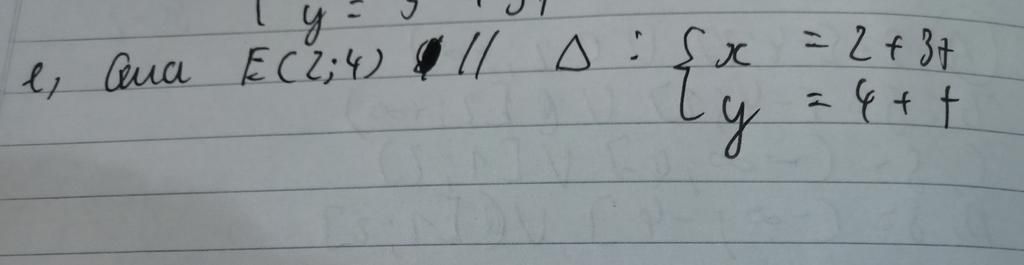 y =
e, Qua E(2;4) // Δ : { x = 2 + 3t
y = 4 + t